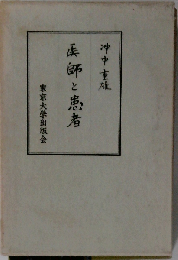 沖中重雄
医師と患者
東京大学出版会